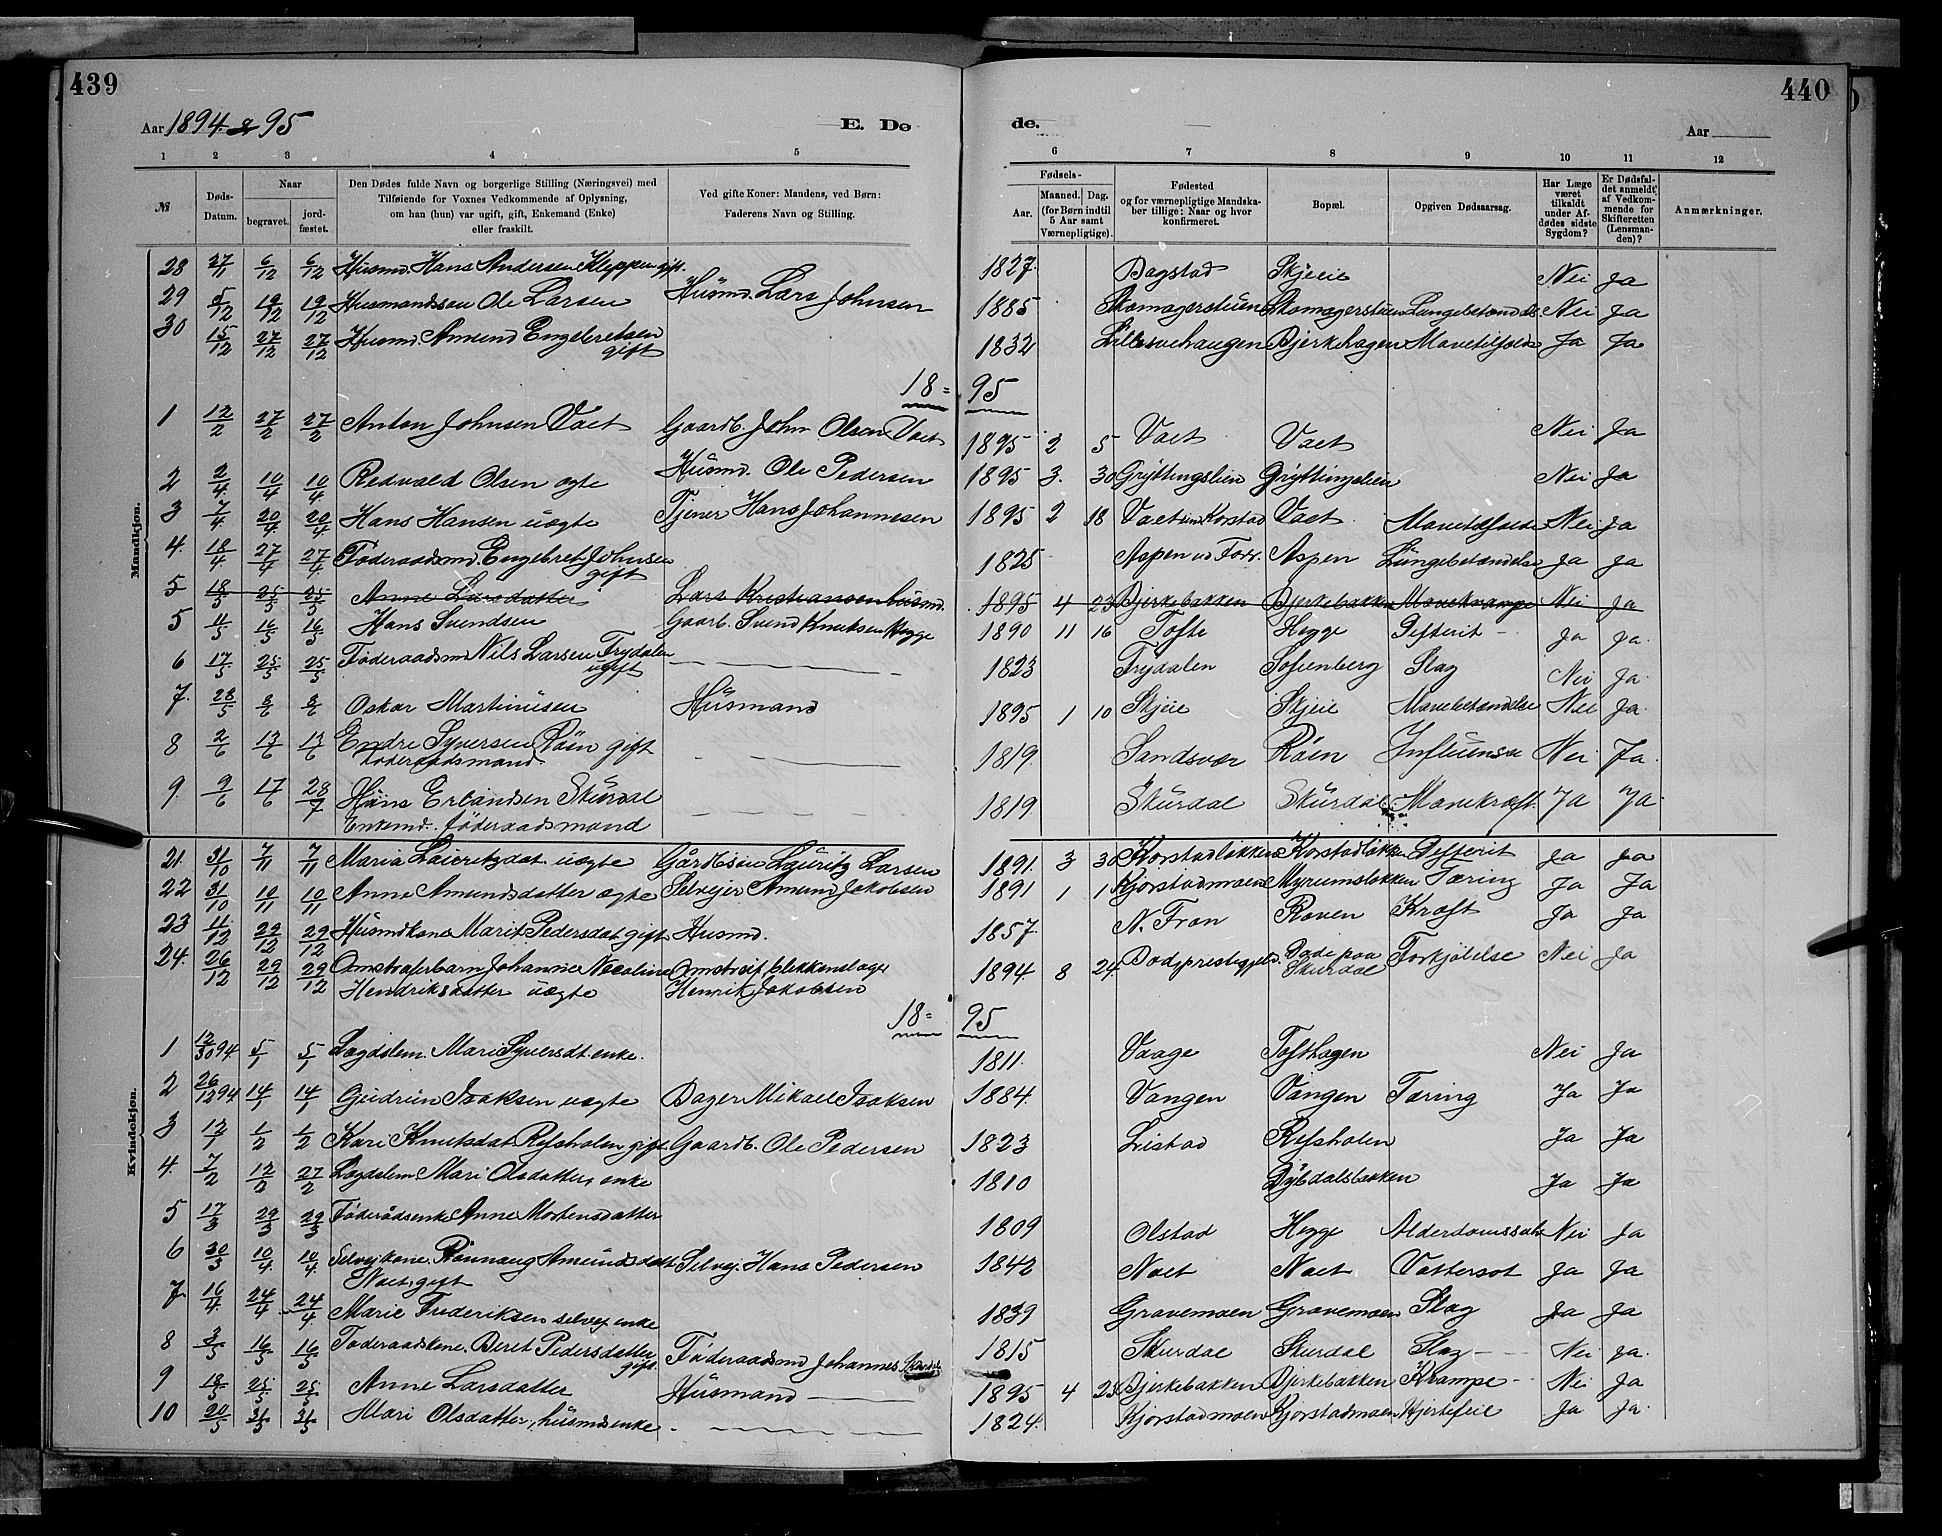 439
440
Aar 1894 & 95
E. Dø
de.
Aar
1 2 3 4 5 6 7 8 9 10 11 12
№
Døds-Datum.
Naar
begravet.
jord-fæstet.
Den Dødes fulde Navn og borgerlige Stilling (Næringsvei) med
Tilføiende for Voxnes Vedkommende af Oplysning,
om han (hun) var ugift, gift, Enkemand (Enke)
eller fraskilt.
Ved gifte Koner: Mandens, ved Børn:
Faderens Navn og Stilling.
Fødsels-
Aar.
Maaned. Dag.
(for Børn indtil
5 Aar samt
Værnepligtige).
Fødested
og for værnepligtige Mandska-
ber tillige: Naar og hvor
konfirmeret.
Bopæl.
Opgiven Dødsaarsag.
Har Læge
været
tilkaldt
under Af-
dødes sidste
Sygdom?
Er Dødsfal-
det anmeldt
af Vedkom-
mende for
Skifteretten
(Lensman-
den)?
Anmærkninger.
Mandkjøn.
28 27/11 6/12 6/12 Husmd. Hans Andersen Kleppen gift. 1827. Bagstad Skjeie Nei Ja
29 5/12 19/12 19/12 Husmandssøn Ole Larsen Husmd. Lars Johnsen 1885 Skomagerstuen Skomagerstuen Nei Ja
30 15/12 27/12 27/12 Husmd. Amund Engebretsen gift 1832 Bjerkehagen Ja Ja
18= 95
1 12/2 27/2 27/2 Anton Johnsen Vaet Gaardb. John Olsen Vaet 1895 2 5 Vaet Vaet Nei Ja
2 2/4 10/4 10/4 Redvald Olsen ægte Husmd. Ole Pedersen 1895 3. 30 Gryttingslien Gryttingslien Nei Ja
3 7/4 20/4 20/4 Hans Hansen uægte Tjener Hans Johannesen 1895 2 18 Vaet Korstad Vaet Nei Ja
4. 18/4 27/4 27/4 Føderaadsmd. Engebret Johnsen gift 1825 Aspen Aspen Lungebetændelse Ja Ja
5 18/5 25/5 25/5 Anne Larsdatter Lars Kristiansen husmd. 1895 4 23 Bjerkebakken Bjerkebakken Mavekrampe Nei Ja
5 11/5 16/5 16/5 Hans Svendsen Gaarb. Svend Knutsen Hegge 1890 11 16 Tofte Hegge Defterit Ja Ja.
6 17/5 25/5 25/5 Føderaadsmd Nils Larsen Frydalen ugift 1823 Frydalen Sofienberg Slag Nei Ja.
7. 28/5 8/6 8/6 Oskar Martinusen Husmand 1895 1 10 Skjeie Skjeie Mavebetændelse Nei Ja.
8 2/6 13/6 13/6 Endre Syversen Røen gift
føderaadsmand. 1819. Sandsvær Røen Influensa Nei Ja.
9. 9/6 17/6 28/7 Hans Erlandsen Skurdal
Enkemd. føderaadsmand 1819 Skurdal Skurdal Mavekræft. Ja Ja
Kvindekjøn.
21. 31/10 7/11 7/11 Maria Lauritzdat. uægte Gårdbsøn Lauritz Larsen 1891. 3 30 Korstadløkken Korstadløkken Defterit Ja Ja
22 31/10 10/11 10/11 Anne Amundsdatter ægte Selvejer Amund Jakobsen 1891 1 1 Kjorstadmoen Myrumsløkken Tæring Ja Ja
23 11/12 29/12 29/12 Husmdkone Marit Pedersdat. gift Husmd. 1857. N. Fron Kræft Ja Ja
24. 26/12 29/12 29/12 Omstreiferbarn Johanne Necoline Omstreif. blikkenslager
Hendriksdatter uægte Henrik Jakobsen 1894 8 24. Døde paa Skurdal Forkjølelse Nei Ja
18= 95
1 12/30 94 5/1 5/1 Lægdslem. Mari Syversdt. enke. 1811. Vaage Tofthagen Nei Ja
2 26/12 94 14/1 14/1 Gudrun Isaksen uægte Bager Mikael Isaksen 1884. Vangen Vangen Tæring Ja Ja
3 12/1 1/2 1/2 Kari Knutsdat. Refsholen, gift Gaardb. Ole Pedersen 1823 Listad Refsholen Ja Ja
4. 7/2 12/2 27/2 Lægdslem Mari Olsdatter, enke 1810 Dybdalsbakken Ja Ja
5 17/3 29/3 29/3 Føderådsenke Anne Mortensdatter 1809 Olstad Hegge Alderdomssvak Nei Ja
6 30/3 10/4 10/4. Selvejkone. Rønnaug Amundsdatt. Selvej. Hans Pedersen
Noet, gift 1842 Noet Noet Vattersot Ja Ja
7. 16/4 24/4 24/4 Marie Frederiksen selvej enke 1839 Gravemoen Gravemoen Slag Ja Ja
8 3/5 16/5 16/5 Føderaadskone. Beret Pedersdatter gift. Føderaadsmd Johannes Skurdal 1815 Skurdal Skurdal Slag Nei Ja.
9 18/5 25/5 25/5 Anne Larsdatter Husmand 1895 4 23 Bjerkebakken Bjerkebakken Krampe Nei Ja
10 20/5 31/5 31/5 Mari Olsdatter, husmdsenke 1824. Kjorstadmoen Kjorstadmoen Hjertefeil Ja Ja.